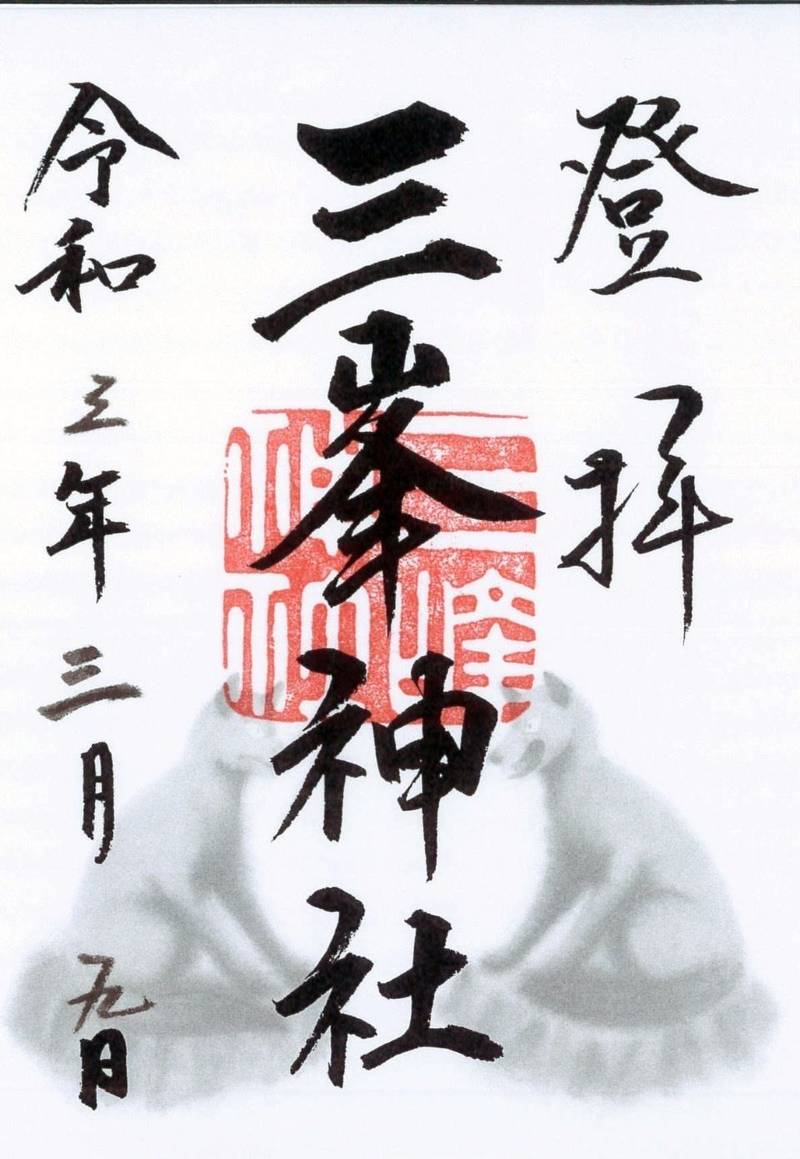 登拝
三峯神社
三峰神社
令和三年三月九日